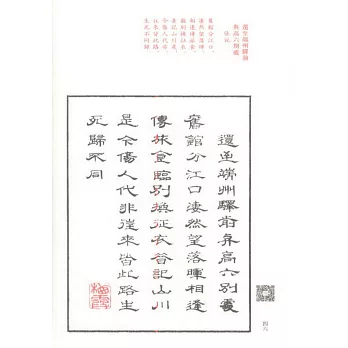 還至端州驛前
與高六別處
張說
舊館分江口，
淒然望落暉。
相逢傳旅食，
臨別換征衣。
昔記山川是，
今傷人代非。
往來皆此路，
生死不同歸。
還至端州驛前與高六別處
舊館分江口淒然望落暉相逢
傳旅食臨別換征衣昔記山川
是今傷人代非往來皆此路生
死歸不同
四六